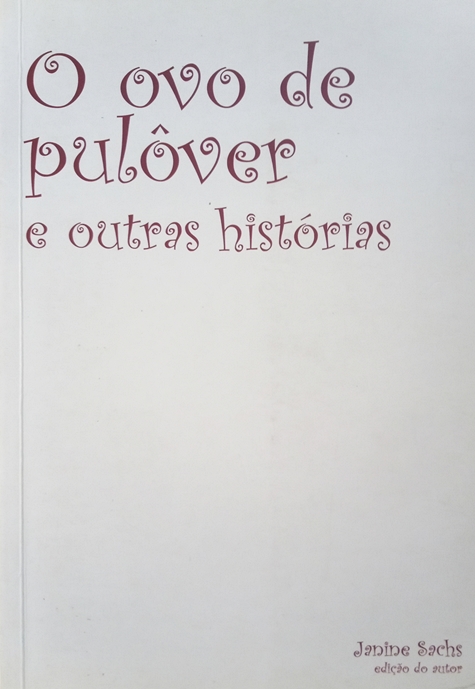 O ovo de
pulôver
e outras histórias
Janine Sachs
edição do autor